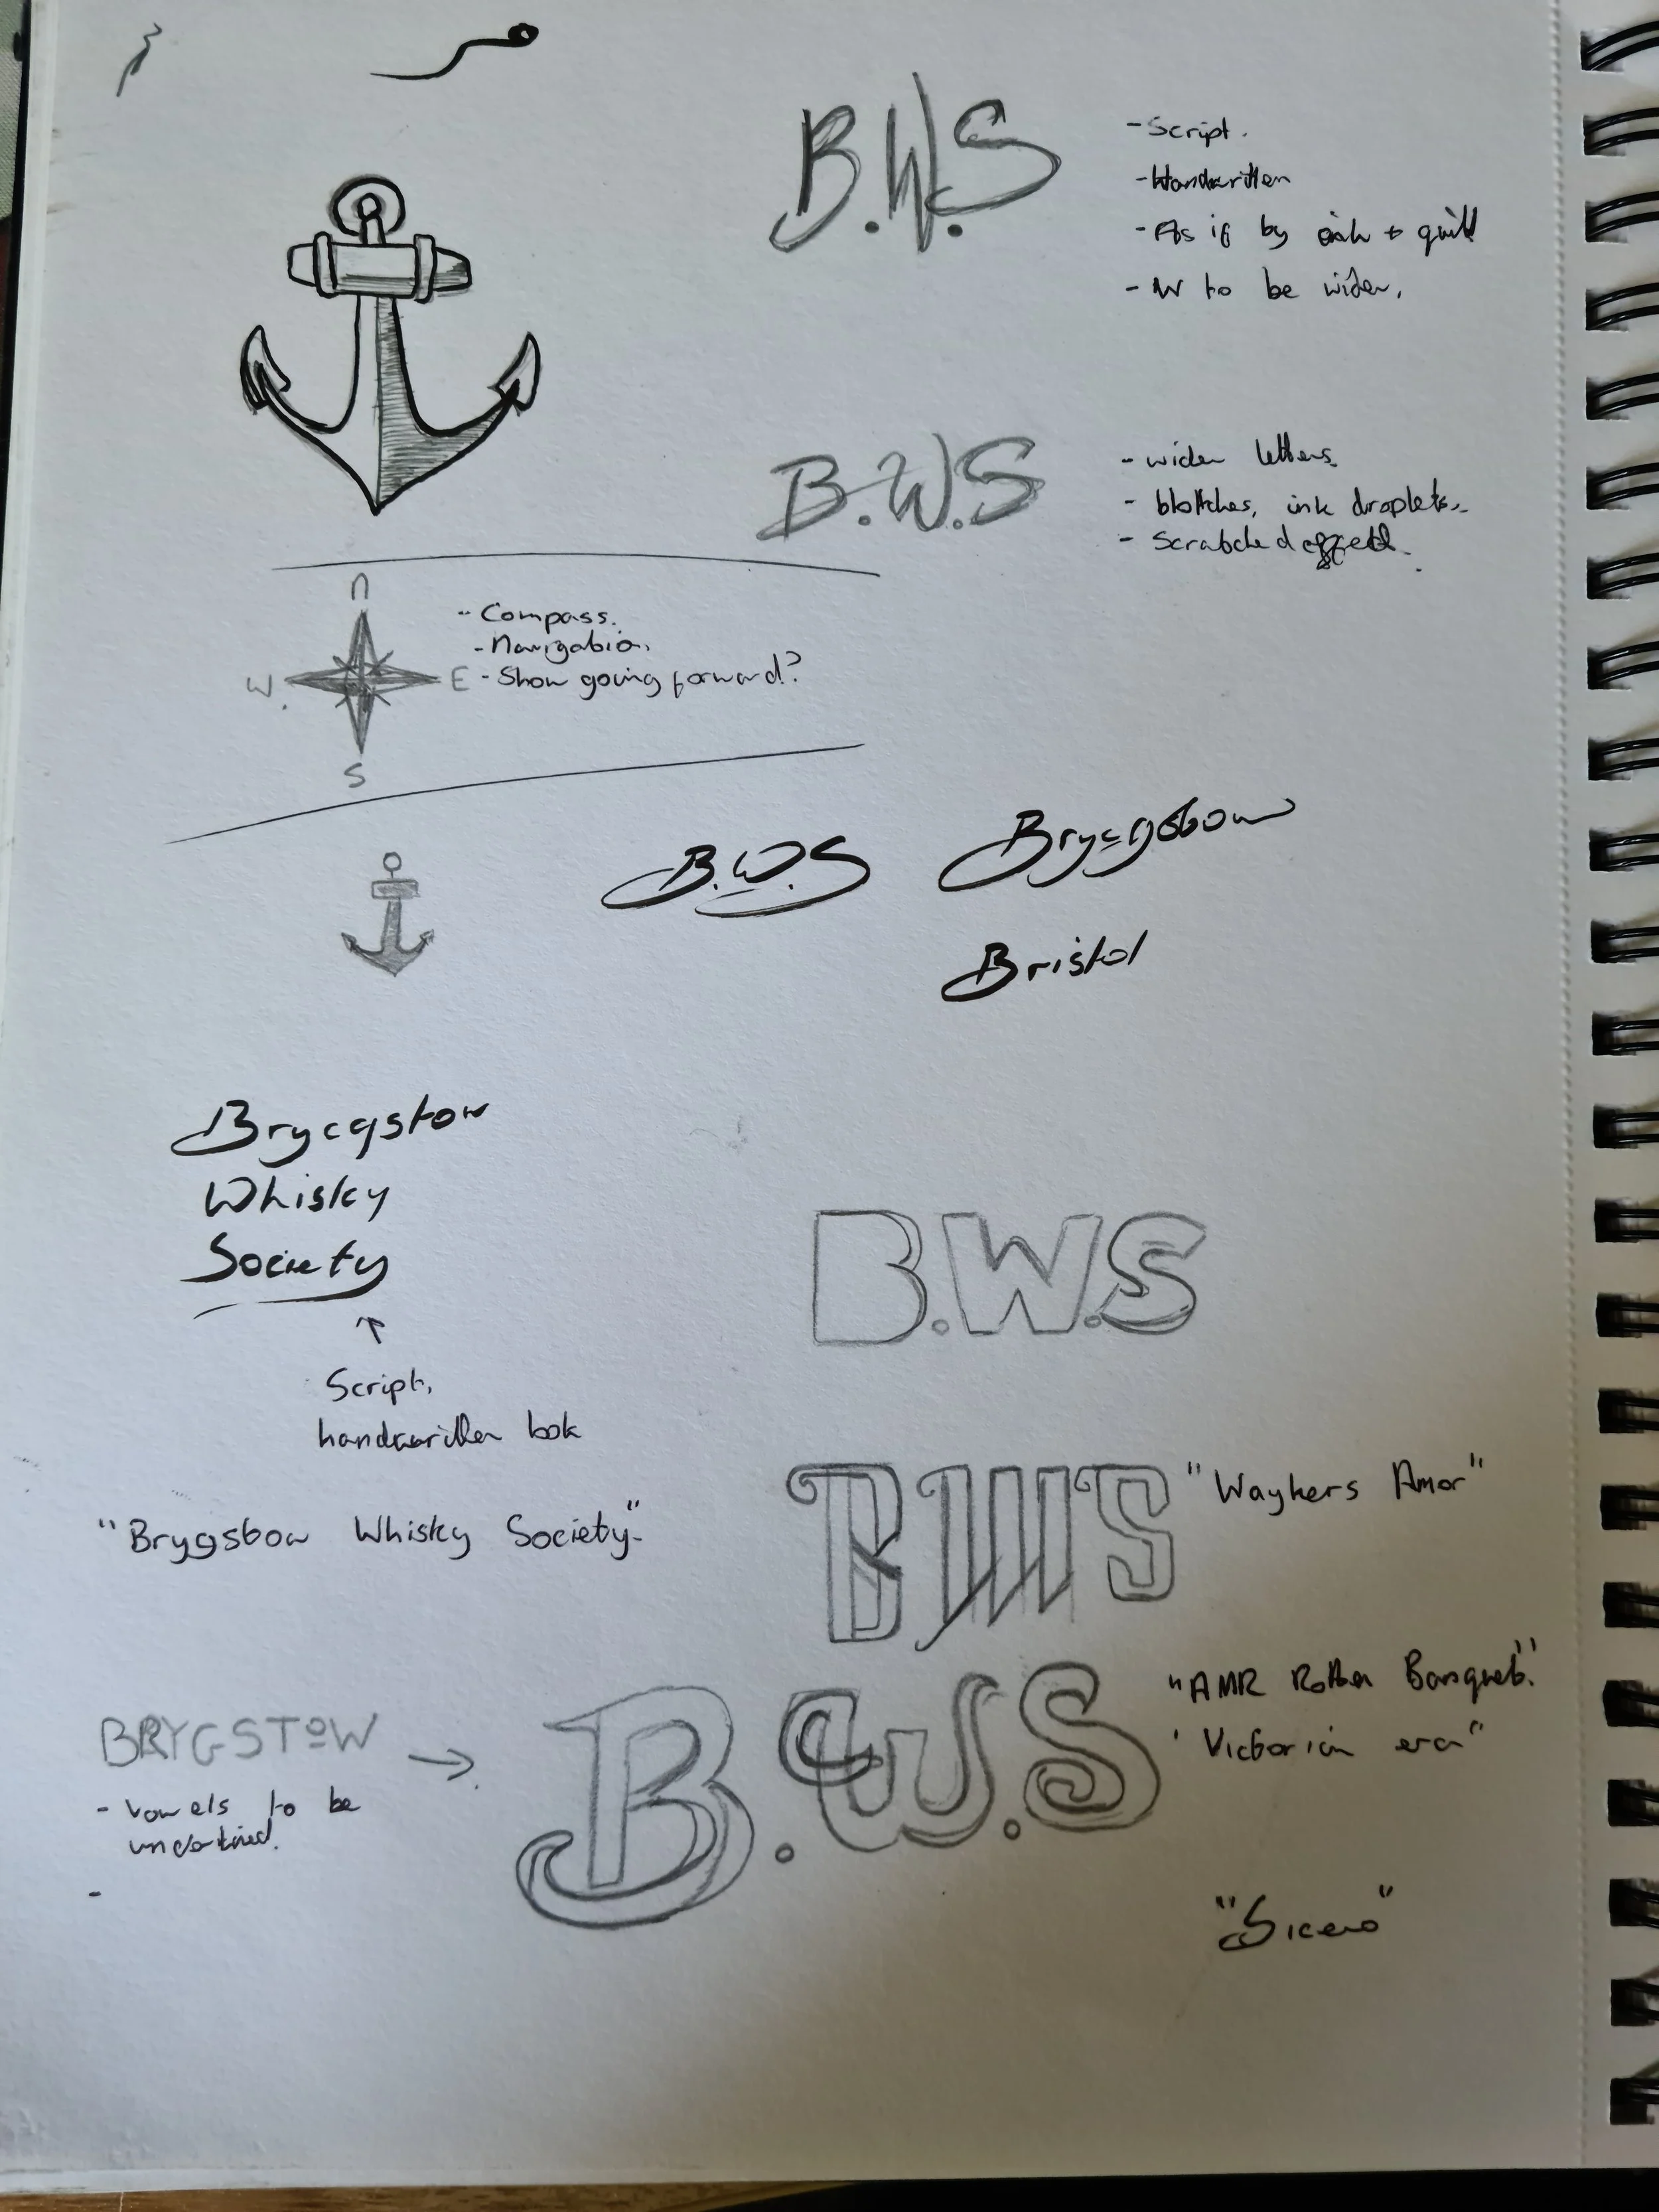 B.W.S
- Script.
- Handwritten
- As if by ink + quill
- W to be wider.
B.W.S
- wider letters
- blotches, ink droplets.
- Scratched effect.
N
W E
S
- Compass.
- Navigation.
- Show going forward?
B.W.S
Brycgstow
Bristol
Brycgstow
Whisky
Society
Script,
handwritten look
B.W.S
BWS
"Brygstow Whisky Society"
"Waykers Amor"
BRYGSTOW
- Vowels to be
B.W.S
"AMR Rotten Banquet"
"Victorian era"